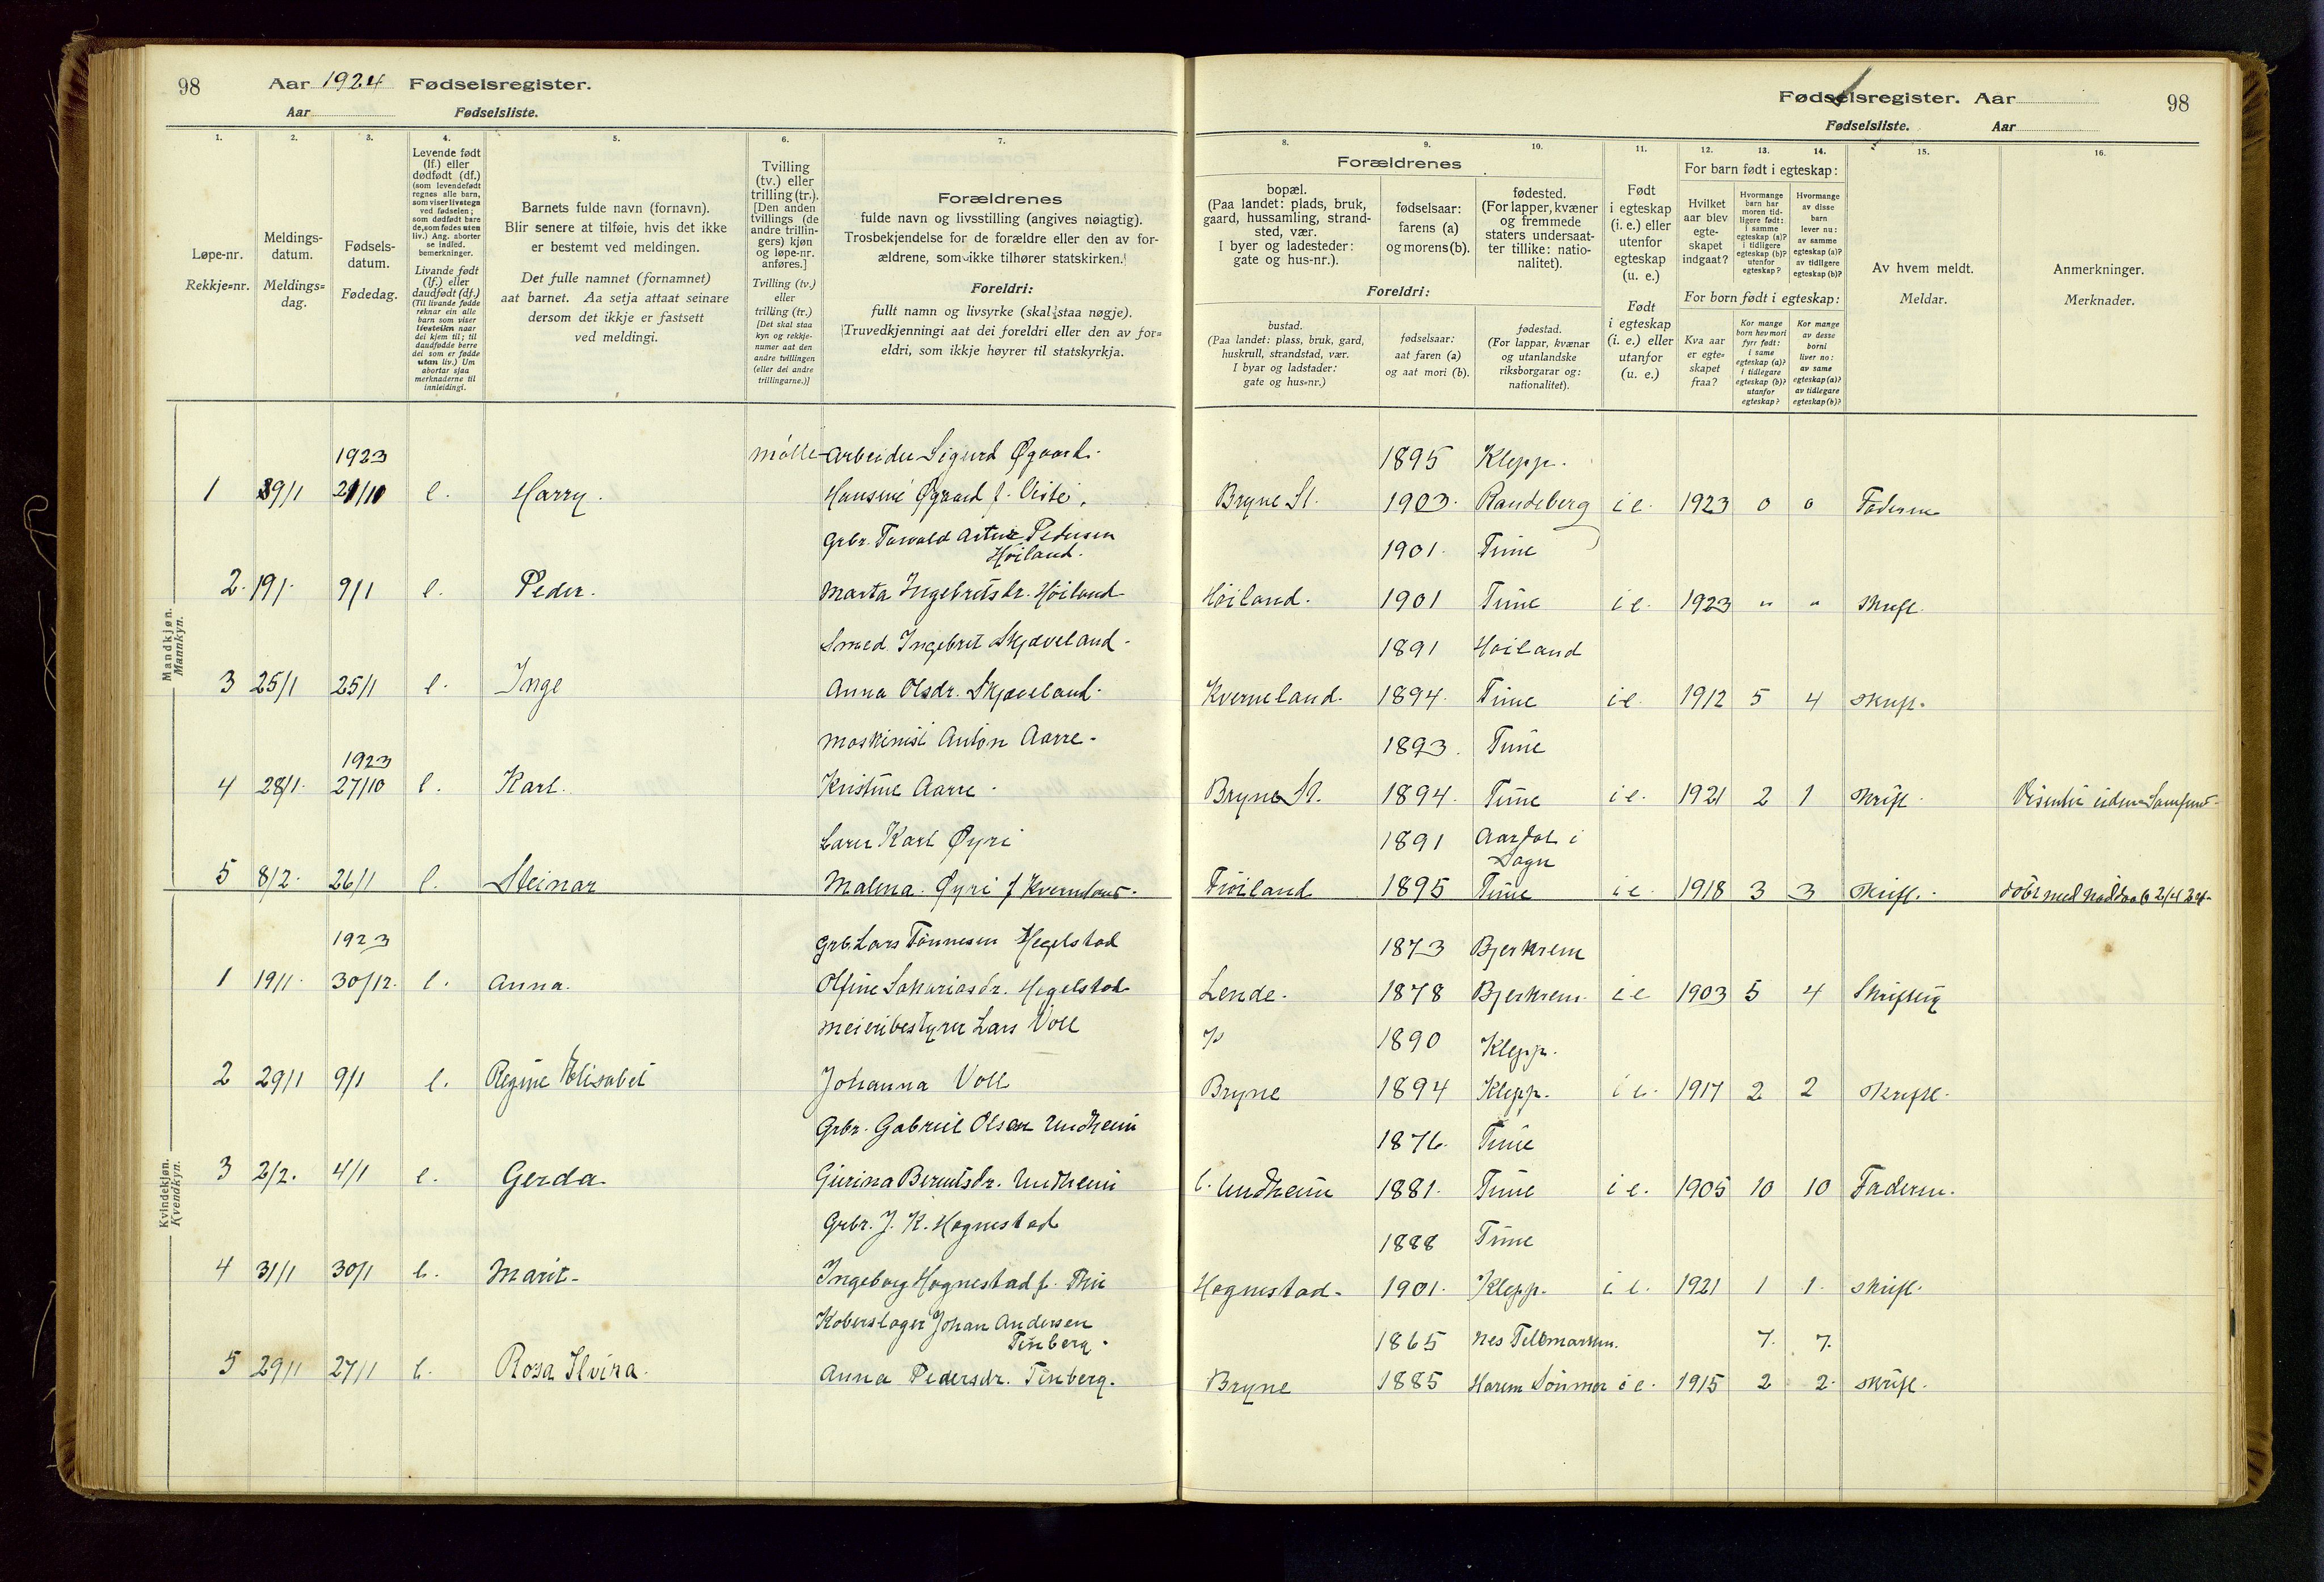 98 Aar 1924 Fødselsregister.
Aar Fødselsliste.
Fødselsregister. Aar 98
Fødselsliste. Aar
1. 2. 3. 4. 5. 6. 7.
Løpe-nr.
Rekkje=nr.
Meldings-
datum.
Meldings=
dag.
Fødsels-
datum.
Fødedag.
Levende født
(lf.) eller
dødfødt (df.)
(som levendefødt
regnes alle barn,
som viser livstegn
ved fødselen;
som dødfødt bare
de, som fødes uten
liv.) Ang. aborter
se indled.
bemerkninger.
Livande født
(lf.) eller
daudfødt (df.)
(Til livande fødde
reknar ein alle
barn som viser
livsteikn naar
dei kjem til; til
daudfødde berre
dei som er fødde
utan liv.) Um
abortar sjaa
merknaderne til
innleidingi.
Barnets fulde navn (fornavn).
Blir senere at tilføie, hvis det ikke
er bestemt ved meldingen.
Det fulle namnet (fornamnet)
aat barnet. Aa setja attaat seinare
dersom det ikkje er fastsett
ved meldingi.
Tvilling
(tv.) eller
trilling (tr.).
[Den anden
tvillings (de
andre trillin-
gers) kjøn
og løpe-nr.
anføres.]
Tvilling (tv.)
eller
trilling (tr.)
[Det skal staa
kyn og rekkje-
numer aat den
andre tvillingen
(eller dei andre
trillingarne.)]
Forældrenes
fulde navn og livsstilling (angives nøiagtig).
Trosbekjendelse for de forældre eller den av for-
ældrene, som ikke tilhører statskirken.
Foreldri:
fullt namn og livsyrke (skal staa nøgje).
Truvedkjenningi aat dei foreldri eller den av for=
eldri, som ikkje høyrer til statskyrkja.
8. 9. 10. 11. 12. 13. 14. 15. 16.
Forældrenes
bopæl.
(Paa landet: plads, bruk,
gaard, hussamling, strand-
sted, vær.
I byer og ladesteder:
gate og hus-nr.).
fødselsaar:
farens (a)
og morens (b).
fødested.
(For lapper, kvæner
og fremmede
staters undersaat-
ter tillike: natio-
nalitet).
Foreldri:
bustad.
(Paa landet: plass, bruk, gard,
huskrull, strandstad, vær.
I byar og ladstader:
gate og hus=nr.)
fødselsaar:
aat faren (a)
og aat mori (b).
fødestad.
(For lappar, kvænar
og utanlandske
riksborgarar og:
nationalitet).
Født
i egteskap
(i. e.) eller
utenfor
egteskap
(u. e.)
Født
i egteskap
(i. e.) eller
utanfor
(u. e.)
For barn født i egteskap:
Hvilket
aar blev
egte-
skapet
indgaat?
Hvormange
barn har
moren tid-
ligere født:
i samme
egteskap (a)?
i tidligere
egteskap (b)?
utenfor
egteskap?
Hvormange
av disse
barn
lever nu:
av samme
egteskap (a)?
av tidligere
egteskap (b)?
For born født i egteskap:
Kva aar
er egte=
skapet
fraa?
Kor mange
born hev mori
fyrr født:
i same
egteskap (a)?
i tidlegare
egteskap (b)?
utanfor
egteskap?
Kor mange
av desse
borni
liver no:
av same
egteskap (a)?
av tidlegare
egteskap (b)?
Av hvem meldt.
Meldar.
Anmerkninger.
Merknader.
Mandkjøn.
Mannkyn.
1923 Mølle-arbeider Sigurd Øgaard. 1895 Klepp.
1 29/1 21/10 l. Harry. Hansine Øgaard f. Viste. Bryne St. 1903. Randeberg i e. 1923 0 0 Faderen
Grbr. Torvald Artur Pedersen
Høiland. 1901. Time
2. 19/1. 9/1 l. Peder. Marta Ingebretsdr. Høiland Høiland. 1901 Time i e. 1923 " " skriftl.
Smed Ingebret Skjæveland. 1891 Høiland
3 25/1 25/1 l. Inge Anna Olsdr. Skjæveland. Kverneland. 1894. Time i e. 1912 5 4 skriftl.
Maskinist Anton Aarre. 1893. Time
1923
4 28/1. 27/10 l. Karl. Kristine Aarre. Bryne St. 1894. Time i e. 1921 2 1 skriftl.
Lærer Karl Øyri 1891 Aardal i
Sogn
5 8/2. 26/1 l. Steinar Malena Øyri f Kverneland. Frøiland 1895 Time i e. 1918 3 3 Skriftl. døbt med nøddaab 2/4 24.
Kvindekjøn.
Kvendkyn.
1923 Grbr. Lars Tønnesen Hegelstad 1873 Bjerkrem
1 19/1. 30/12. l. Anna. Olfine Sakariasdr. Hegelstad Lende. 1878 Bjerkrem. i e 1903 5 4 Skriftlig
Meieribestyrer Lars Voll 1890 Klepp.
2 29/1 9/1 l. Regine Elisabet Johanna Voll Bryne 1894 Klepp. i e. 1917 2 2 skriftl.
Grbr. Gabriel Olsen Undheim 1876. Time
3 2/2. 4/1 l. Gerda Gurina Berntsdr. Undheim Undheim 1881. Time i e. 1905 10 10 Faderen.
Grbr. J. K. Hognestad 1888 Time
4 31/1 30/1 l. Marit Ingeborg Hognestad f. Thu Hognestad. 1901. Klepp. i e. 1921 1 1. skriftl.
Koberslager Johan Andersen
Tinberg. 1865 Nes Telemarken. 7. 7.
5 29/1 27/1 l. Rosa Elvira. Anna Pedersdr. Tinberg. Bryne 1885 Harem Sønmør i e. 1915 2 2. skriftl.